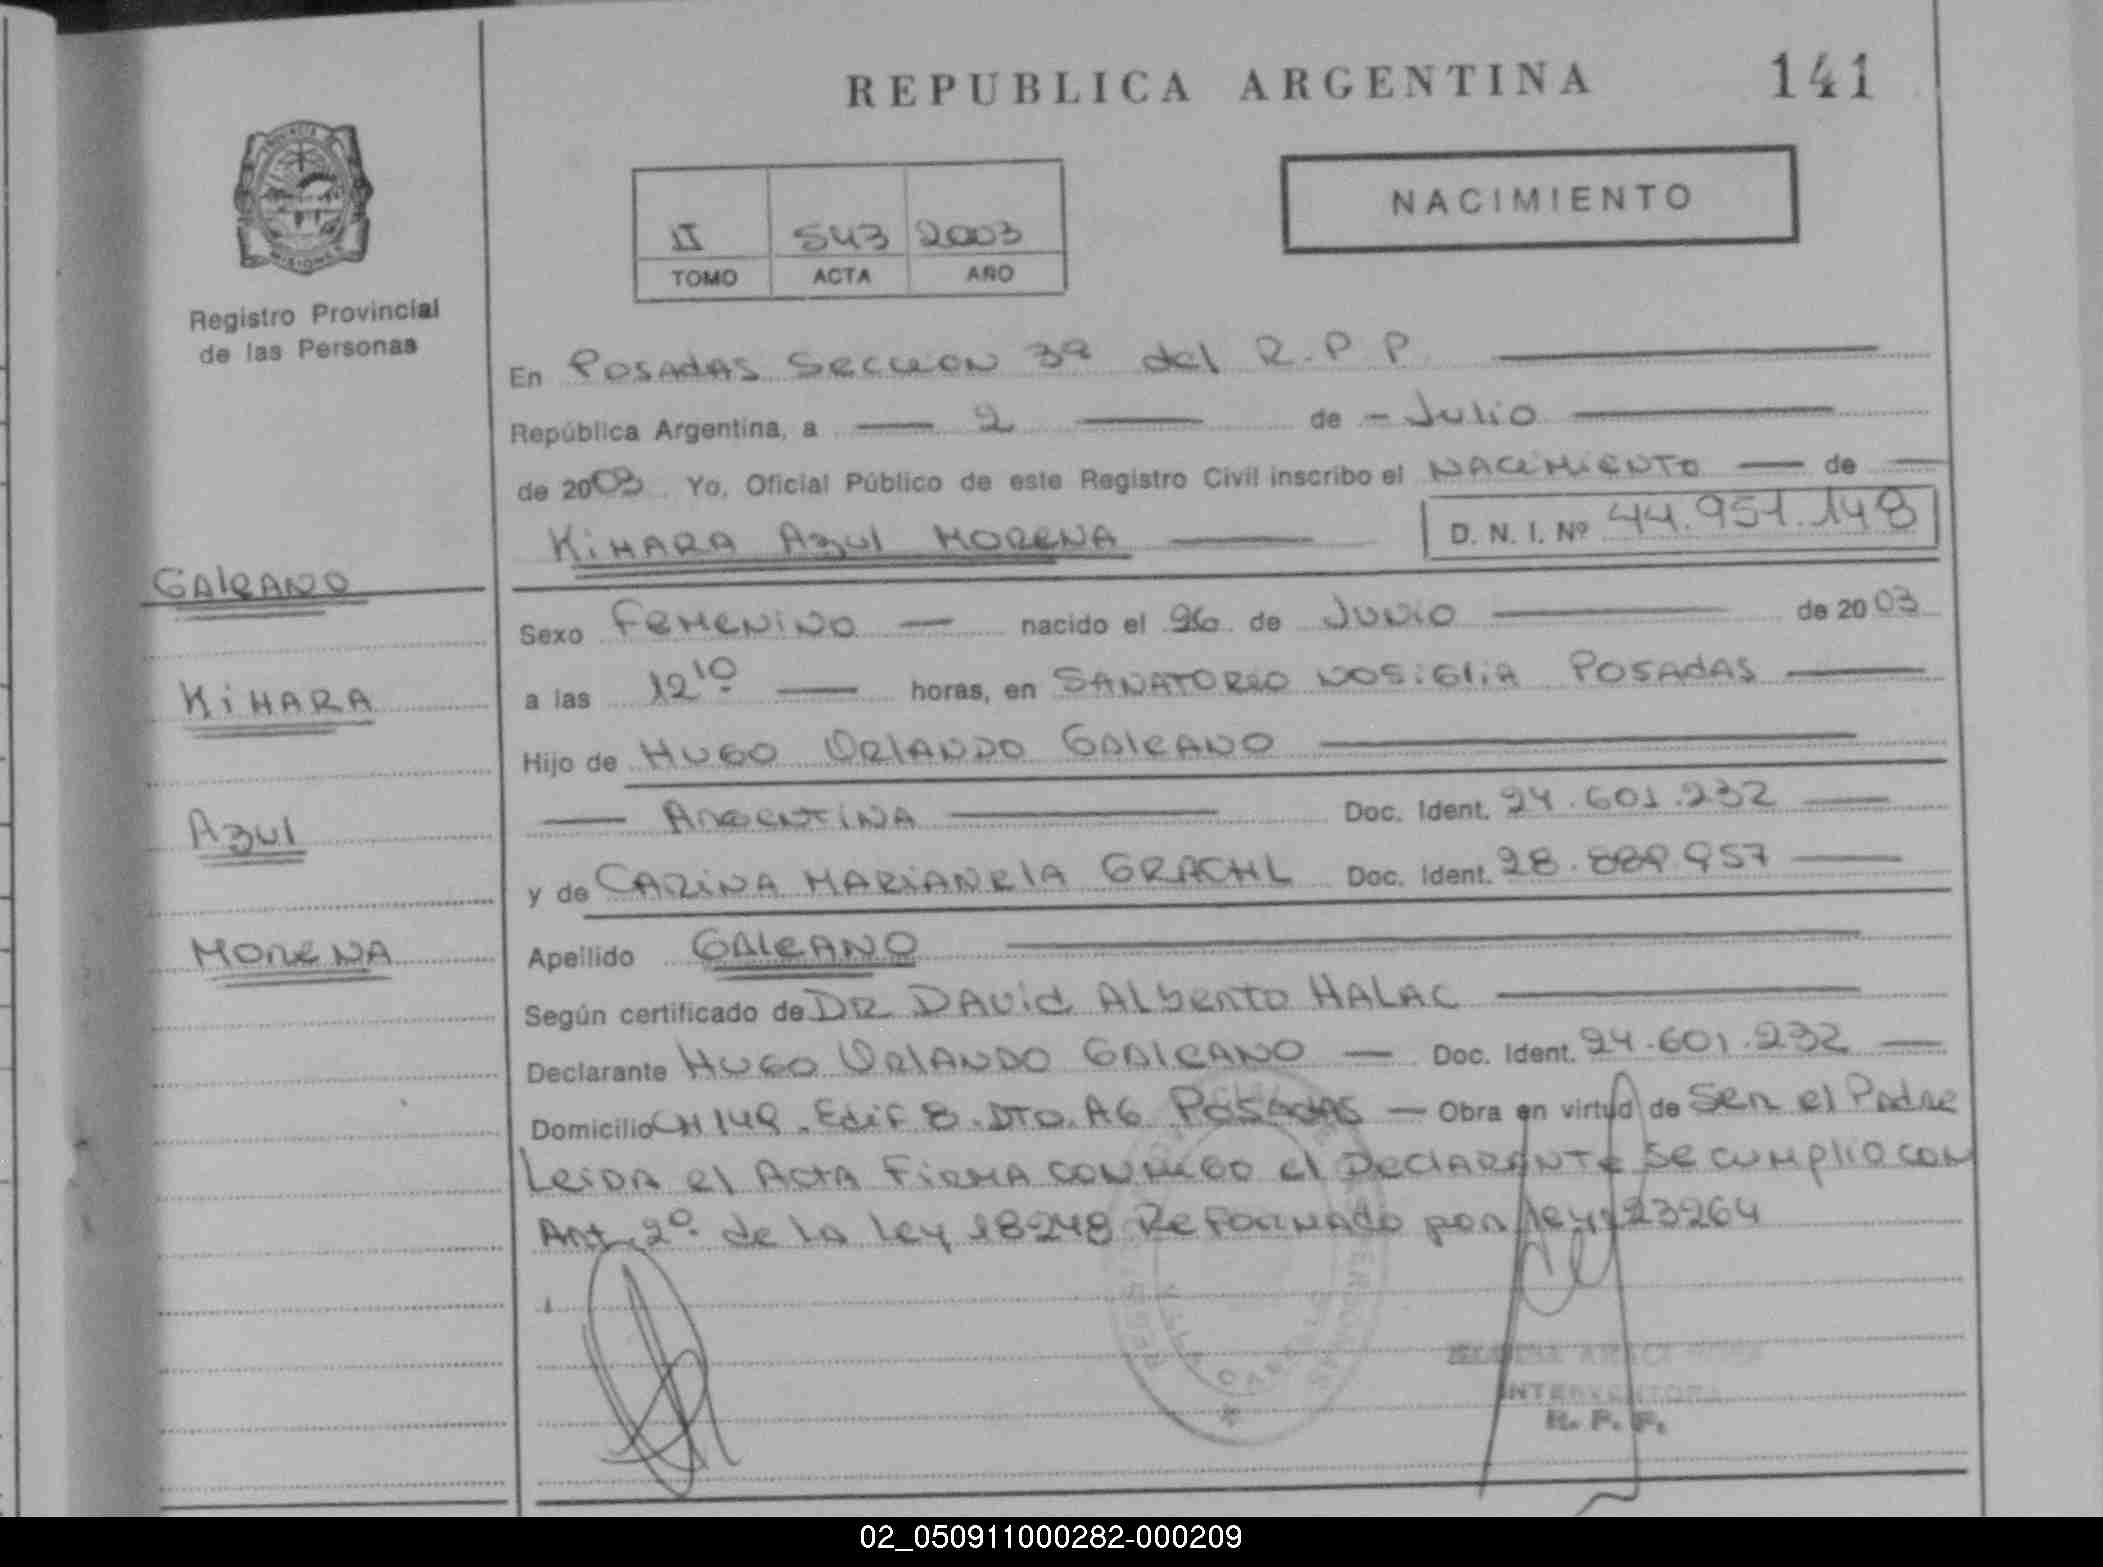 REPUBLICA ARGENTINA
141
PROVINCIA
MISIONES
Registro Provincial
de las Personas
II 543 2003
TOMO ACTA AÑO
NACIMIENTO
En Posadas Seccion 3ª del R.P.P.
República Argentina, a 2 de Julio
de 2003 Yo, Oficial Público de este Registro Civil inscribo el NACIMIENTO de
KIHARA Azul MORENA D. N. I. Nº 44.951.148
GALEANO
KIHARA
Azul
MORENA
Sexo FEMENINO nacido el 26 de JUNIO de 2003
a las 12¹⁰ horas, en SANATORIO NOSiGliA POSADAS
Hijo de HUGO ORLANDO GALEANO
ARGENTINA Doc. Ident. 24.601.232
y de CARINA MARIANELA GRACHL Doc. Ident. 28.889.957
Apellido GALEANO
Según certificado de DR DAVid Alberto HALAC
Declarante HUGO ORLANDO GALEANO Doc. Ident. 24.601.232
Domicilio CH 149. Edif 8. DTO. A6 POSADAS Obra en virtud de Ser el Padre
LeiDA el ActA FiRMA CONMIGO el DeclARANTE Se cumplio con
Art. 2º de la ley 18248 Reformado por ley 23264
INTERVENTORA
R. P. P.
02_050911000282-000209